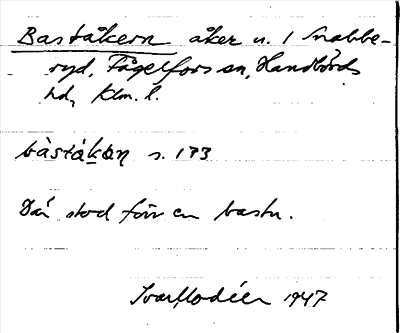 Baståkern åker u. 1 Snabbe-
ryd, Fågelfors sn, Handbörds
hd, Klm. l.
bàståkən s. 173
Där stod förr en bastu.
Ivar Modéer 1947